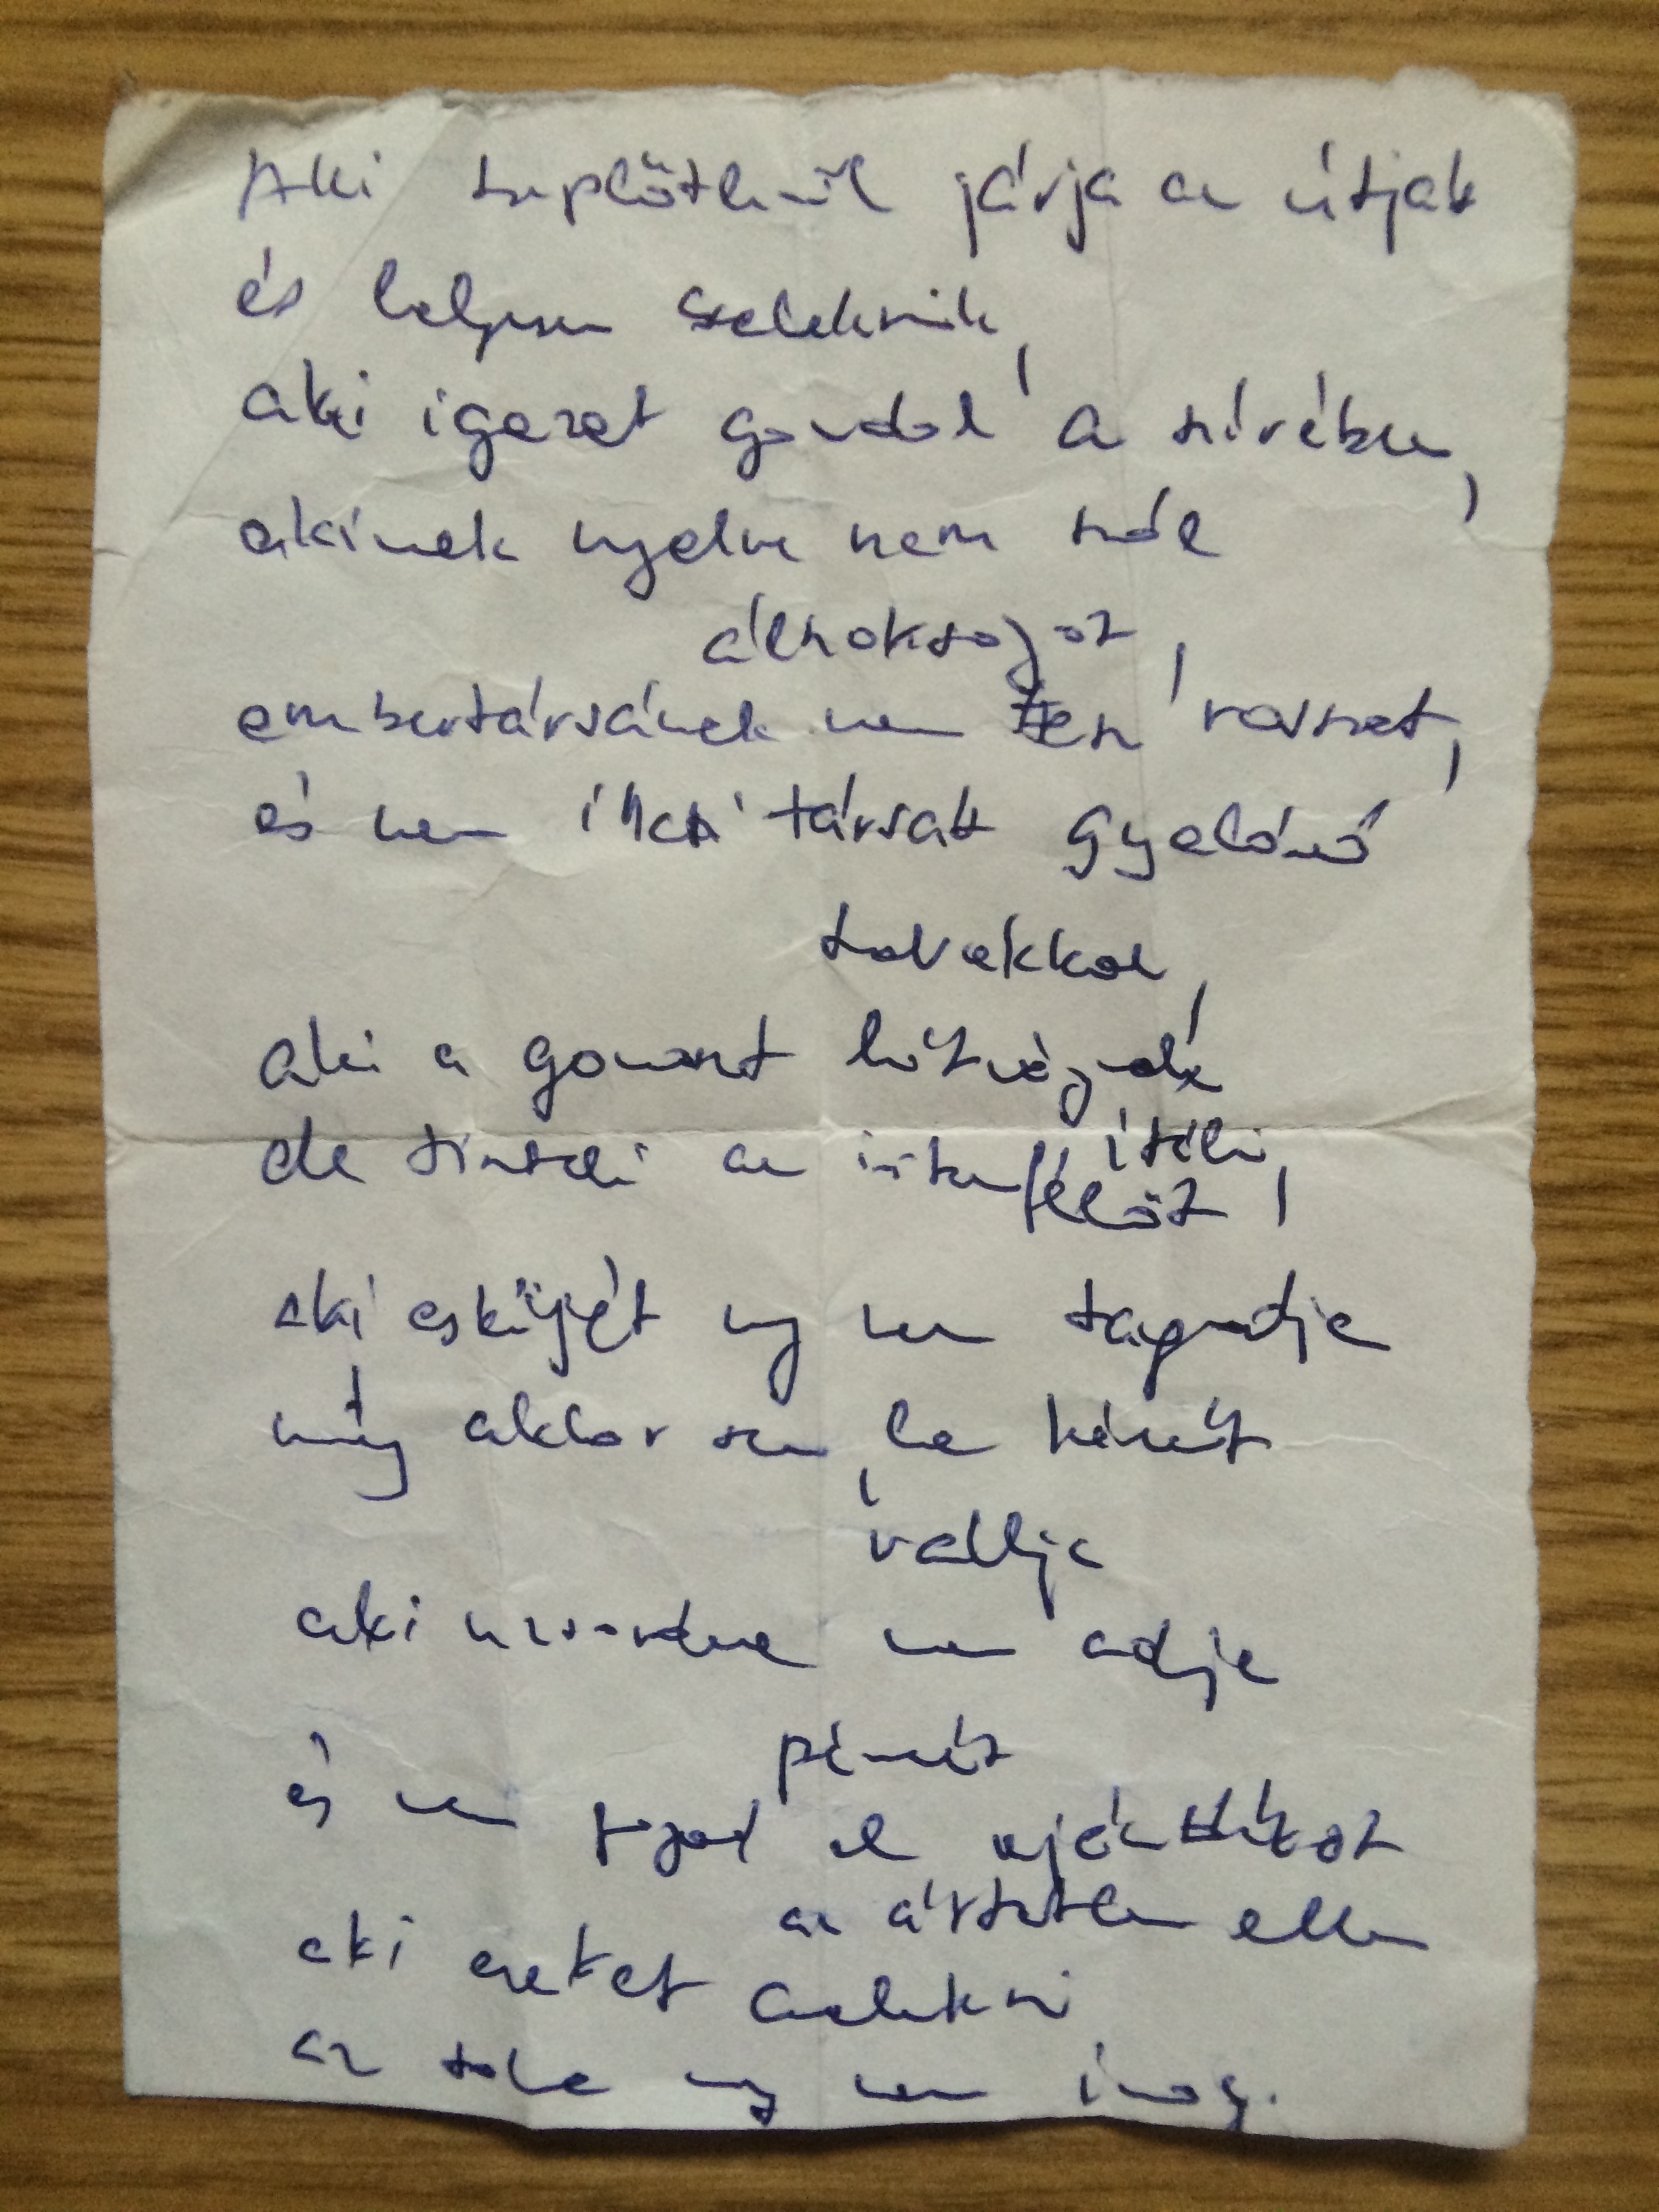 Aki szeplőtlenül járja az útját
és helyesen cselekszik,
aki igazat gondol a szívében,
akinek nyelve nem szól
álnokságot,
embertársának nem tesz rosszat,
és nem illeti társát gyalázó
szavakkal,
aki a gonoszt hitványnak
ítéli,
de tiszteli az istenfélőt,
aki esküjét meg nem tagadja
még akkor sem, ha kárát
vallja
aki uzsorára nem adja
pénzét
és nem fogad el ajándékot
az ártatlan ellen
aki ezeket cselekszi
az soha meg nem inog.